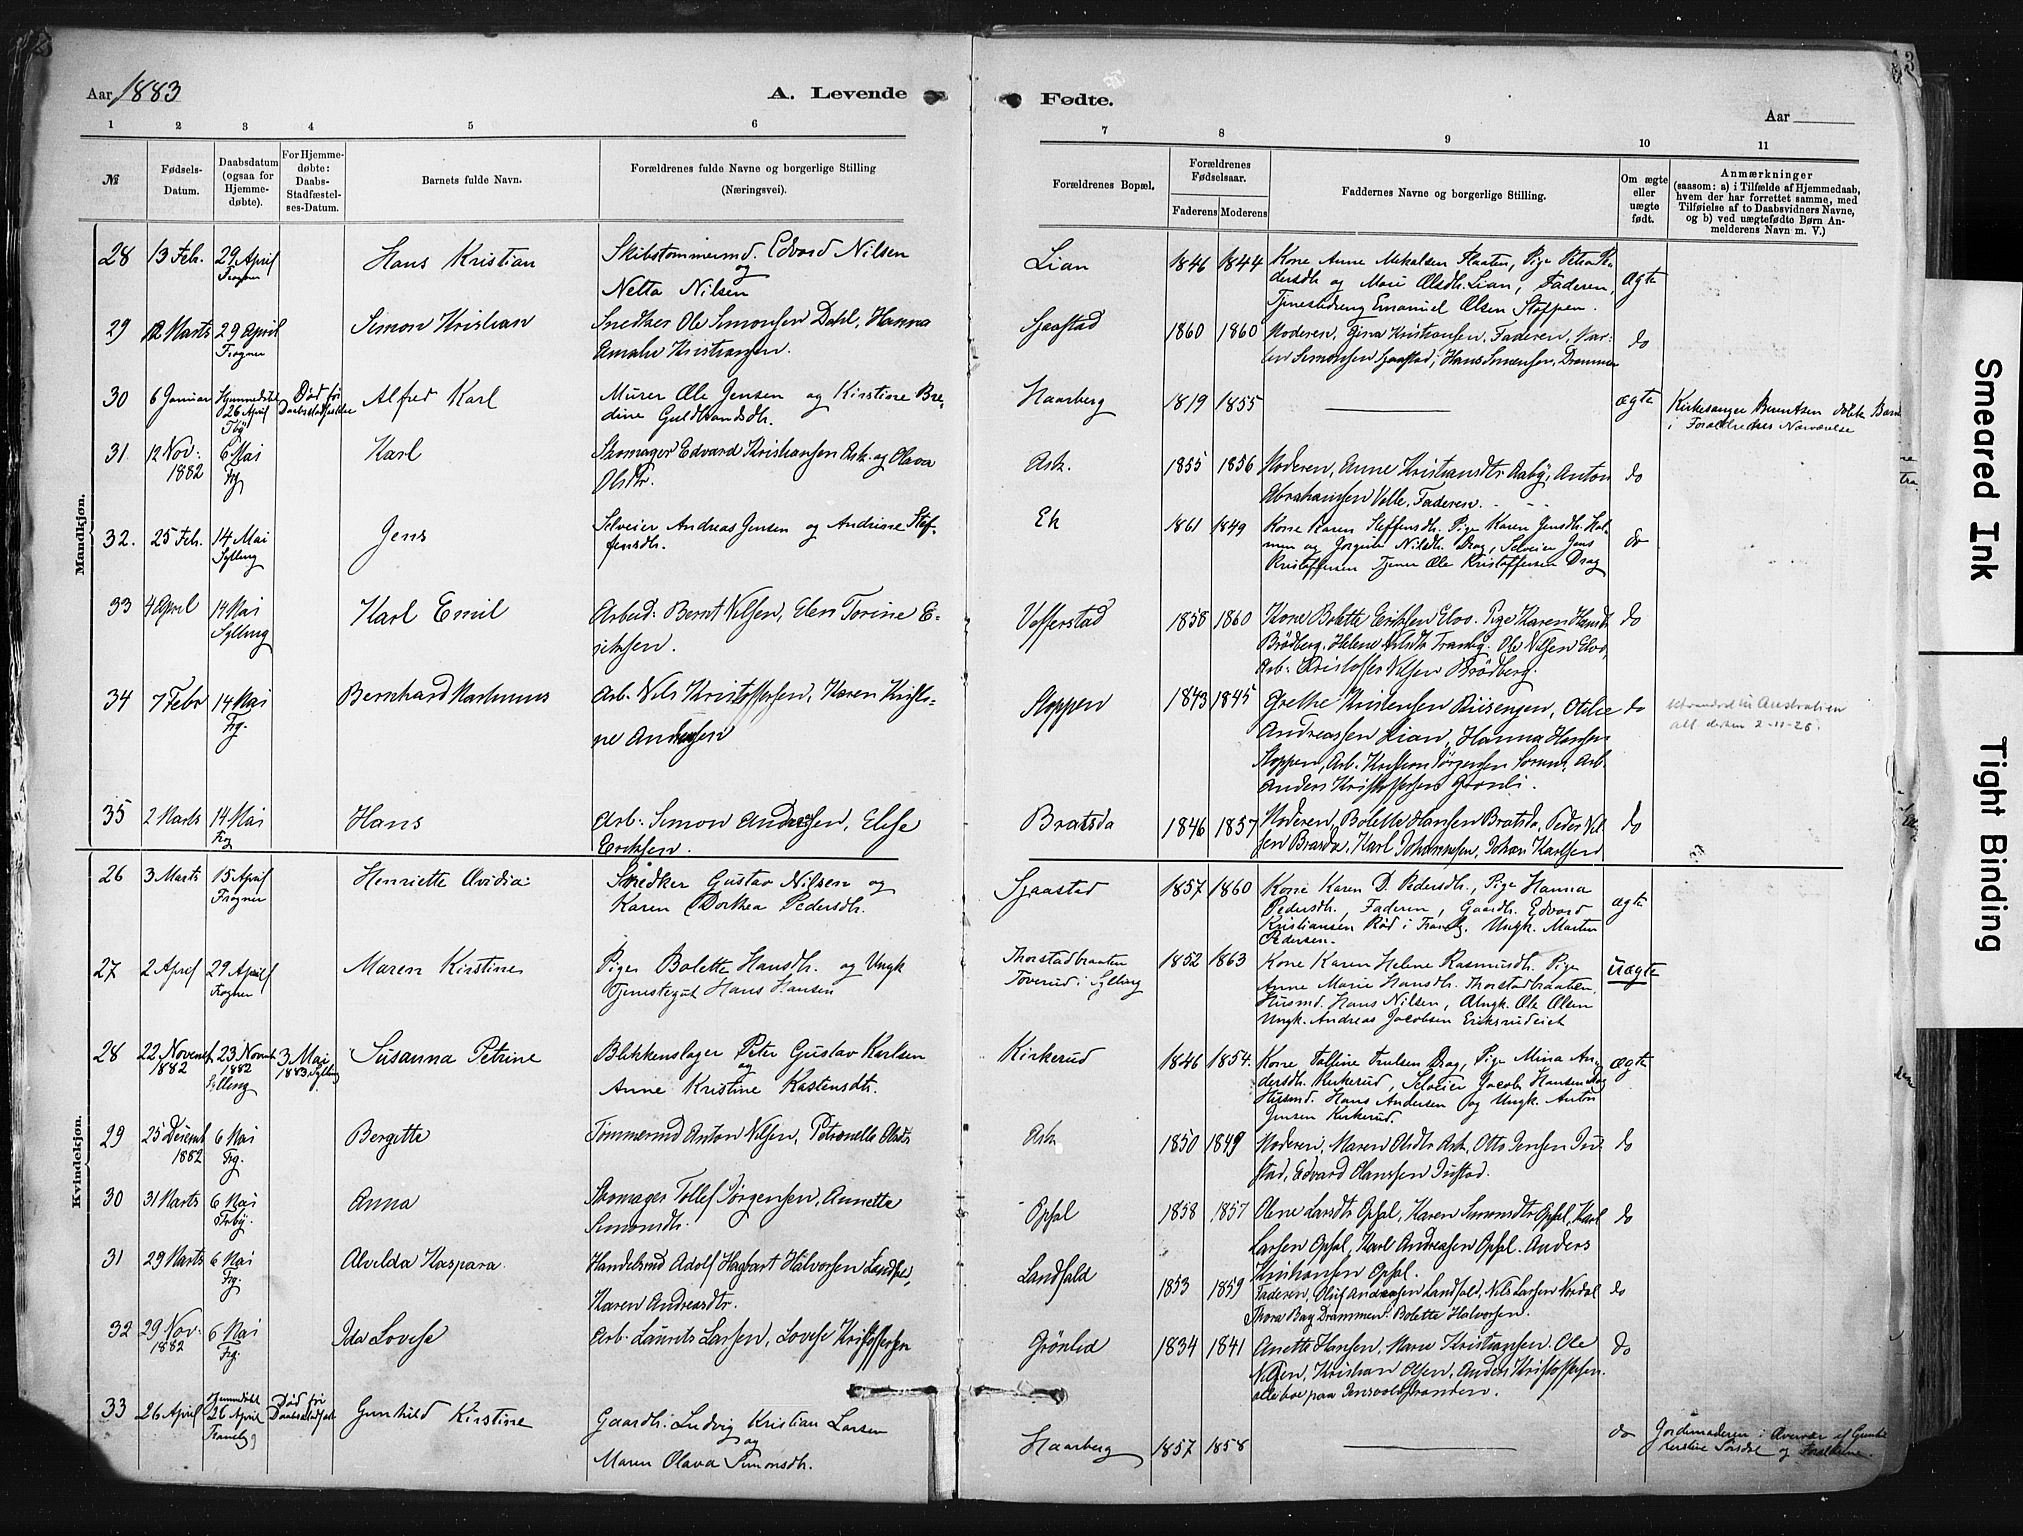 Aar 1883
A. Levende
Fødte.
Aar
1 2 3 4 5 6
7 8 9 10 11
№
Fødsels-
Datum.
Daabsdatum
(ogsaa for
Hjemme-
døbte).
For Hjemme-
døbte:
Daabs-
Stadfæstel-
ses-Datum.
Barnets fulde Navn.
Forældrenes fulde Navne og borgerlige Stilling
(Næringsvei).
Forældrenes Bopæl.
Forældrenes
Fødselsaar.
Faderens Moderens
Faddernes Navne og borgerlige Stilling.
Om ægte
eller
uægte
født.
Anmærkninger
(saasom: a) i Tilfælde af Hjemmedaab,
hvem der har forrettet samme, med
Tilføielse af to Daabsvidners Navne,
og b) ved uægtefødte Børn An-
melderens Navn m. V.)
Mandkjøn.
28 13 Feb. 29 April Frogner Hans Kristian
Skibstømmermd. Edvard Nilsen
og
Netta Nilsen
Lian 1846 1844
Kone Anne Mikalsen Plaaten, Pige Petra Pe-
dersdh og Mari Olsdh. Lian, Faderen,
Tjenestedreng Emanuel Olsen Stoppen.
ægte
29 12 Marts 29 April Frogner Simon Kristian
Snedker Ole Simonsen Dahl, Hanna
Amalie Kristiansen.
Gjaastad 1860 1860
Moderen, Gina Kristiansen, Faderen, Mar-
tin Simonsen Gjaastad, Hans Simensen, Drammen
do
30 6 Januar Hjemmedøbt 26 April Tby Død før Daabsstadfæstelse Alfred Karl
Murer Ole Jensen og Kirstine Bre-
dine Guldbrandsdh.
Haarberg 1819 1855
ægte
Kirkesanger Berentsen døbte Barnet
i Forældrenes Nærværelse
31 12 Nov. 1882 6 Mai Frg Karl
Skomager Edvard Kristiansen Ask. og Olava
Olsdtr.
Ask. 1855 1856
Moderen, Anne Kristiansdtr Aaby, Anton
Abrahamsen Velle, Faderen.
do
32. 25 Feb. 14 Mai Sylling Jens
Selveier Andreas Jensen og Andrine Stef-
fensdh.
Ek 1861 1849
Kone Karen Steffensdh. Pige Karen Jensdh. Hol-
men og Jorgine Nilsdh. Drag, Selveier Jens
Kristoffersen Tjener Ole Kristoffersen Drag
do
33 4 April 14 Mai Sylling Karl Emil
Arbeid. Bernt Nilsen, Elen Torine E-
riksen.
Vefferstad 1858 1860
Kone Bolette Eriksen Elvo. Pige Karen Hansdt
Brødberg. Helene Nilsdtr Tranby. Ole Nilsen Elvo,
Arb. Kristoffer Nilsen Brødberg.
do
34 7 Febr 14 Mai Frg. Bernhard Rasmus
Arb. Nils Kristoffersen, Karen Kristi-
ne Andersen
Stoppen 1843 1845
Grethe Kristensen Riisengen, Otilie
Andreassen Lian, Hanna Hansen
Stoppen, Arb. Kristian Jørgensen Sorum, Arb.
Anders Kristoffersen Grønli.
do
utvandret til Australien
att. derfra 2-11-26.
35 2 Marts 14 Mai Frg Hans
Arb. Simon Andersen, Elise
Eriksen.
Bratsda 1846 1857
Moderen, Bolette Hansen Bratsda, Peder Nil-
sen Brasda, Karl Johannesen, Johan Karlsen
do
Kvindekjøn.
26 3 Marts 15 April Frogner Henriette Avidia
Snedker Gustav Nilsen og
Karen Dorthea Pedersdh.
Gjaastad 1857 1860
Kone Karen D. Pedersdh., Pige Hanna
Pedersdh., Faderen, Gaardh. Edvard
Kristiansen Rød i Tranby. Ungk. Martin
Pedersen.
ægte
27 2 April 29 April Frogner Maren Kirstine
Pige Bolette Hansdh. og Ungk
Tjenestegut Hans Hansen
Thorstadbraaten
Toverud i Sylling
1852 1863
Kone Karen Helene Rasmusdh. Pige
Anne Marie Hansdh. Thorstadbraaten,
Husmd. Hans Nilsen, Ungk. Ole Olsen
Ungk. Andreas Jacobsen Eriksrudeiet
uægte
28 22 Novembr 1882 23 Novembr 1882 Sylling 3 Mai 1883 Sylling Susanna Petrine
Blikkenslager Peter Gustav Karlsen
og
Anne Kristine Kastensdtr.
Kirkerud 1846 1854.
Kone Tolline Truelsen Drag, Pige Mina An-
dersdh. Kirkerud, Selveier Jacob Hansen Drag
Husmd. Hans Andersen og Ungk. Anton
Jensen Kirkerud.
ægte
29 25 Desembr 1882 6 Mai Frg. Bergitte
Tømmermd Anton Nilsen, Petronelle Olsdtr
Ask 1850 1849
Moderen, Maren Olsdtr Ask, Otto Jensen Ju-
stad, Edvard Hanssen Justad.
do
30 31 Marts 6 Mai Trby. Anna
Skomager Tollef Jørgensen, Annette
Simonsdtr.
Opsal 1858 1857
Olene Larsdtr Opsal, Karen Simonsdtr Opsal, Karl
Larsen Opsal, Karl Andreasen Opsal. Anders
Kristiansen Opsal.
do
31 29 Marts 6 Mai Frg. Alvilda Kaspara
Handelsmd Adolf Hagbart Halvorsen Landfal,
Karen Andreasdtr.
Landfald 1853 1859
Faderen, Oluf Andreasen Landfald, Nils Larsen Nordal
Thora Bay Drammen. Bolette Halvorsen.
do
32 29 Nov. 1882 6 Mai Frg. Ida Lovise
Arb. Laurits Larsen, Lovise Kristoffersen
Grønlid 1834 1841
Anette Hansen, Marie Kristiansen. Ole
Nilsen, Kristian Olsen, Anders Kristoffersen.
alle boe paa Jensvoldstranden.
do
33 26 April Hjemmedøbt 26 April Tranby Død før Daabsstadfæst Gunhild Kirstine
Gaardbr. Ludvig Kristian Larsen
og
Maren Olava Simonsdh.
Haarberg 1857 1858
do
Jordemoderen i Overvær af
Kirstine og Forældrene.
Smeared Ink
Tight Binding